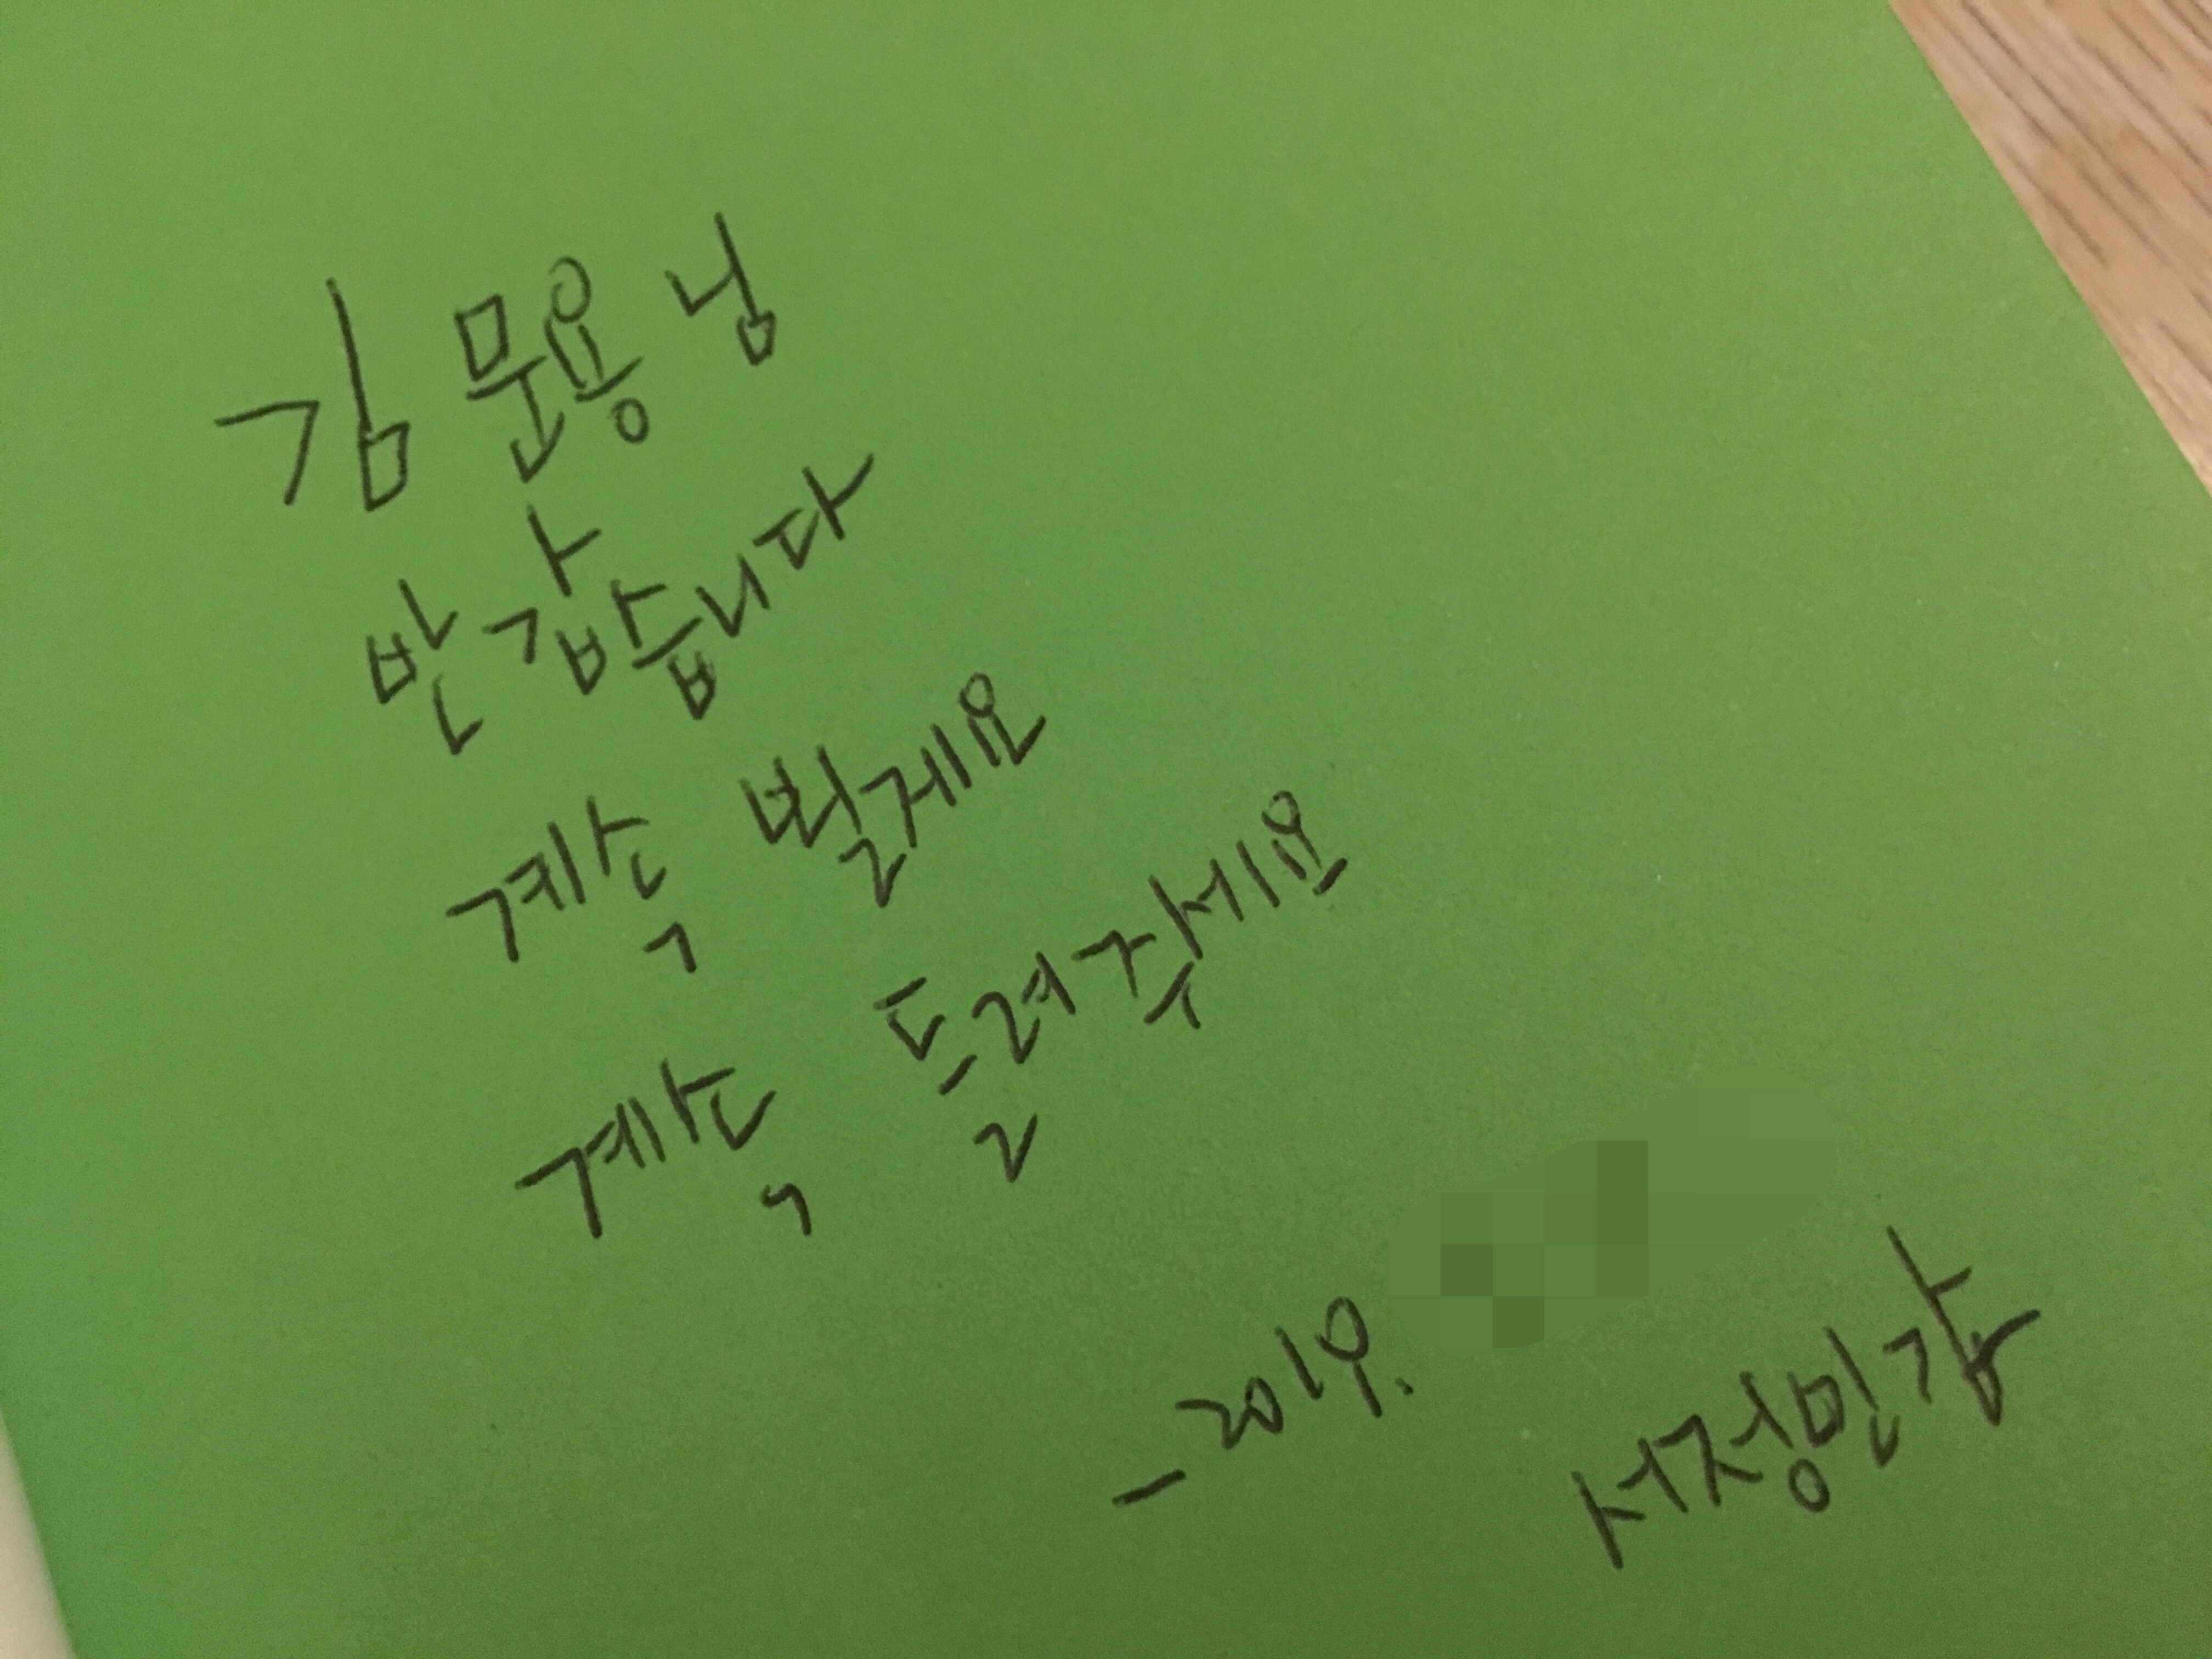 김문용 님
반갑습니다
계속 뵐게요
계속 들려주세요
- 2019.
서정민갑